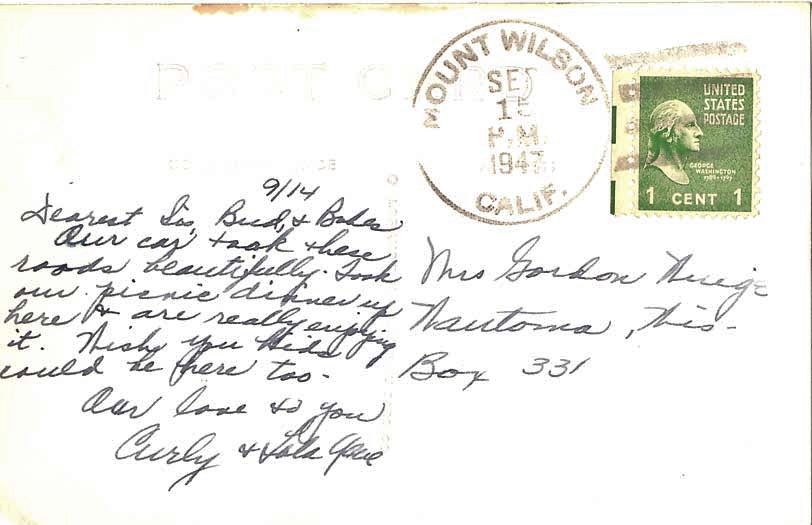 POST CARD
MOUNT WILSON
SEP
15
P.M.
1947
CALIF.
UNITED
STATES
POSTAGE
GEORGE
WASHINGTON
1789-1797
1 CENT 1
9/14
Dearest Sis, Bud, &
Our car took these
roads beautifully. Took
our picnic dinner up
here & are really enjoying
it. Wish you kids
could be here too -
Our love to you
Curly & Lola
Mrs Gordon
Wautoma, Wis-
Box 331